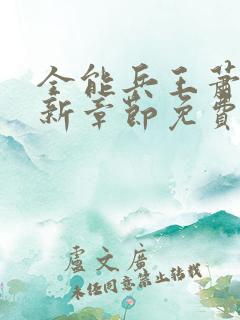 全能兵王萧
新章节免费
盧文廣
未经同意禁止转载